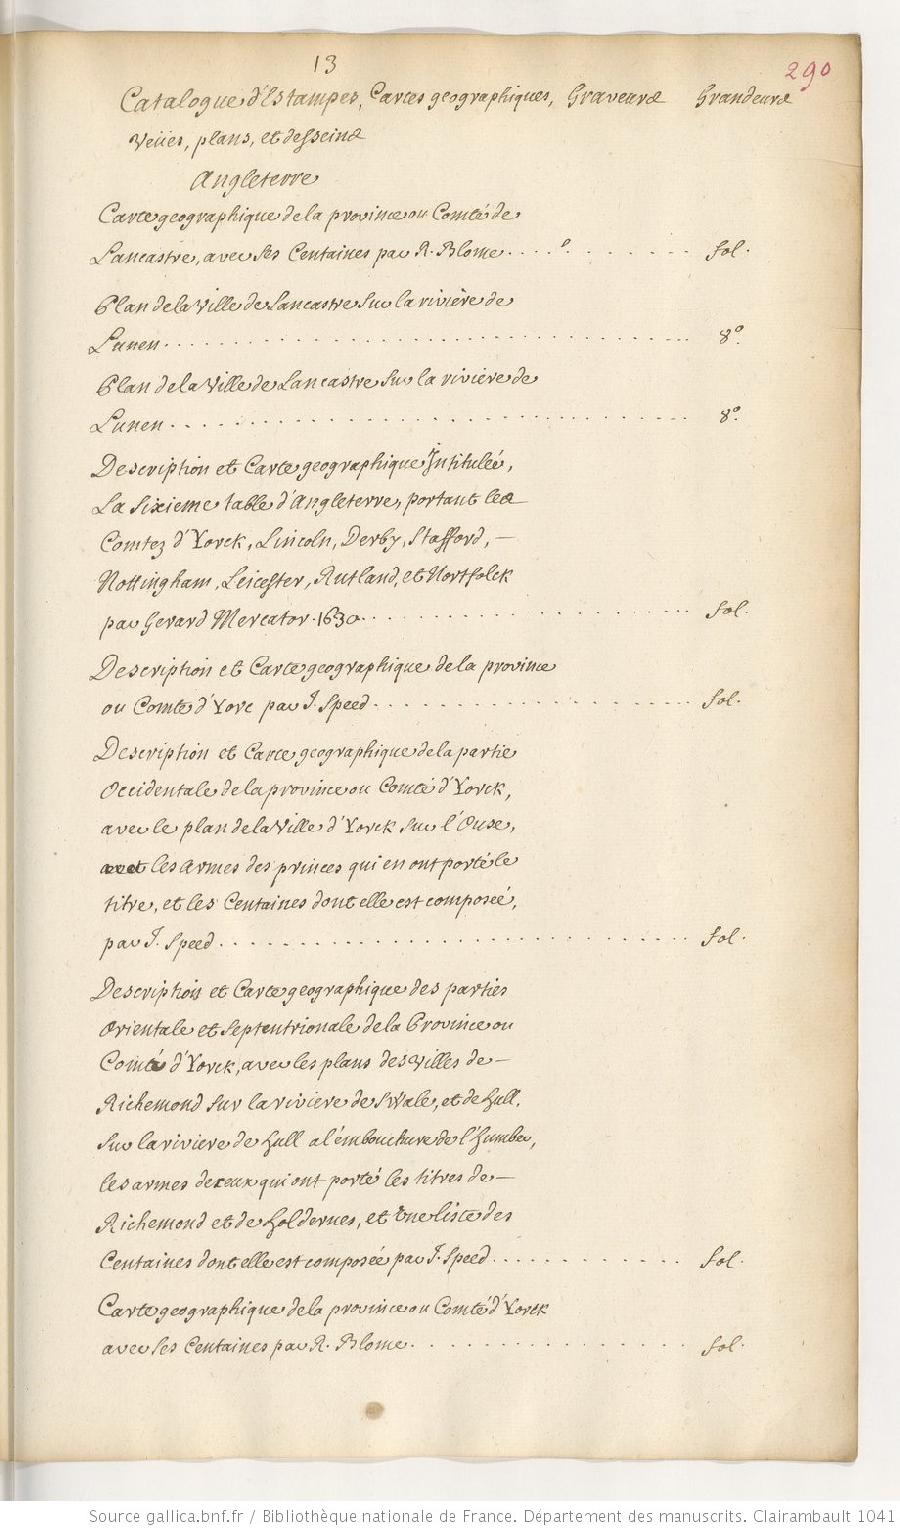 13
290
Catalogue d'Estampes, Cartes geographiques, Graveurs Grandeurs
Veües, plans, et desseins
Angleterre
Carte geographique de la province ou Comté de
Lancastre, avec ses Centaines par R. Blome . . . . . . . . . . . . fol.
Plan de la Ville de Lancastre sur la rivière de
Lunen . . . . . . . . . . . . . . . . . . . . . . . . . . . . . . 8°.
Plan de la Ville de Lancastre sur la riviere de
Lunen . . . . . . . . . . . . . . . . . . . . . . . . . . . . . . 8°.
Description et Carte geographique Intitulée,
La Sixieme table d'Angleterre, portant les
Comtez d'Yorck, Lincoln, Derby, Stafford, —
Nottingham, Leicester, Rutland, et Nortfolck
par Gerard Mercator. 1630 . . . . . . . . . . . . . . . . . . fol.
Description et Carte geographique de la province
ou Comté d'Yorc par J. Speed . . . . . . . . . . . . . . . . . . fol.
Description et Carte geographique de la partie
Occidentale de la province ou Comté d'Yorck,
avec le plan de la Ville d'Yorck sur l'Ouse,
les armes des princes qui en ont porté le
titre, et les Centaines dont elle est composeé,
par J. Speed . . . . . . . . . . . . . . . . . . . . . . . . . . fol.
Description et Carte geographique des parties
Orientale et Septentrionale de la Province ou
Comté d'Yorck, avec les plans des Villes de —
Richemond sur la riviere de Swale, et de hull,
sur la riviere de hull a l'émbouchure de l'humber,
les armes de ceux qui ont porté les titres de —
Richemond et de holdernes, et Une liste des
Centaines dont elle est composée par J. Speed . . . . . . . . . . fol.
Carte geographique de la province ou Comté d'Yorck
avec ses Centaines par R. Blome . . . . . . . . . . . . . . . . fol.
Source gallica.bnf.fr / Bibliothèque nationale de France. Département des manuscrits. Clairambault 1041